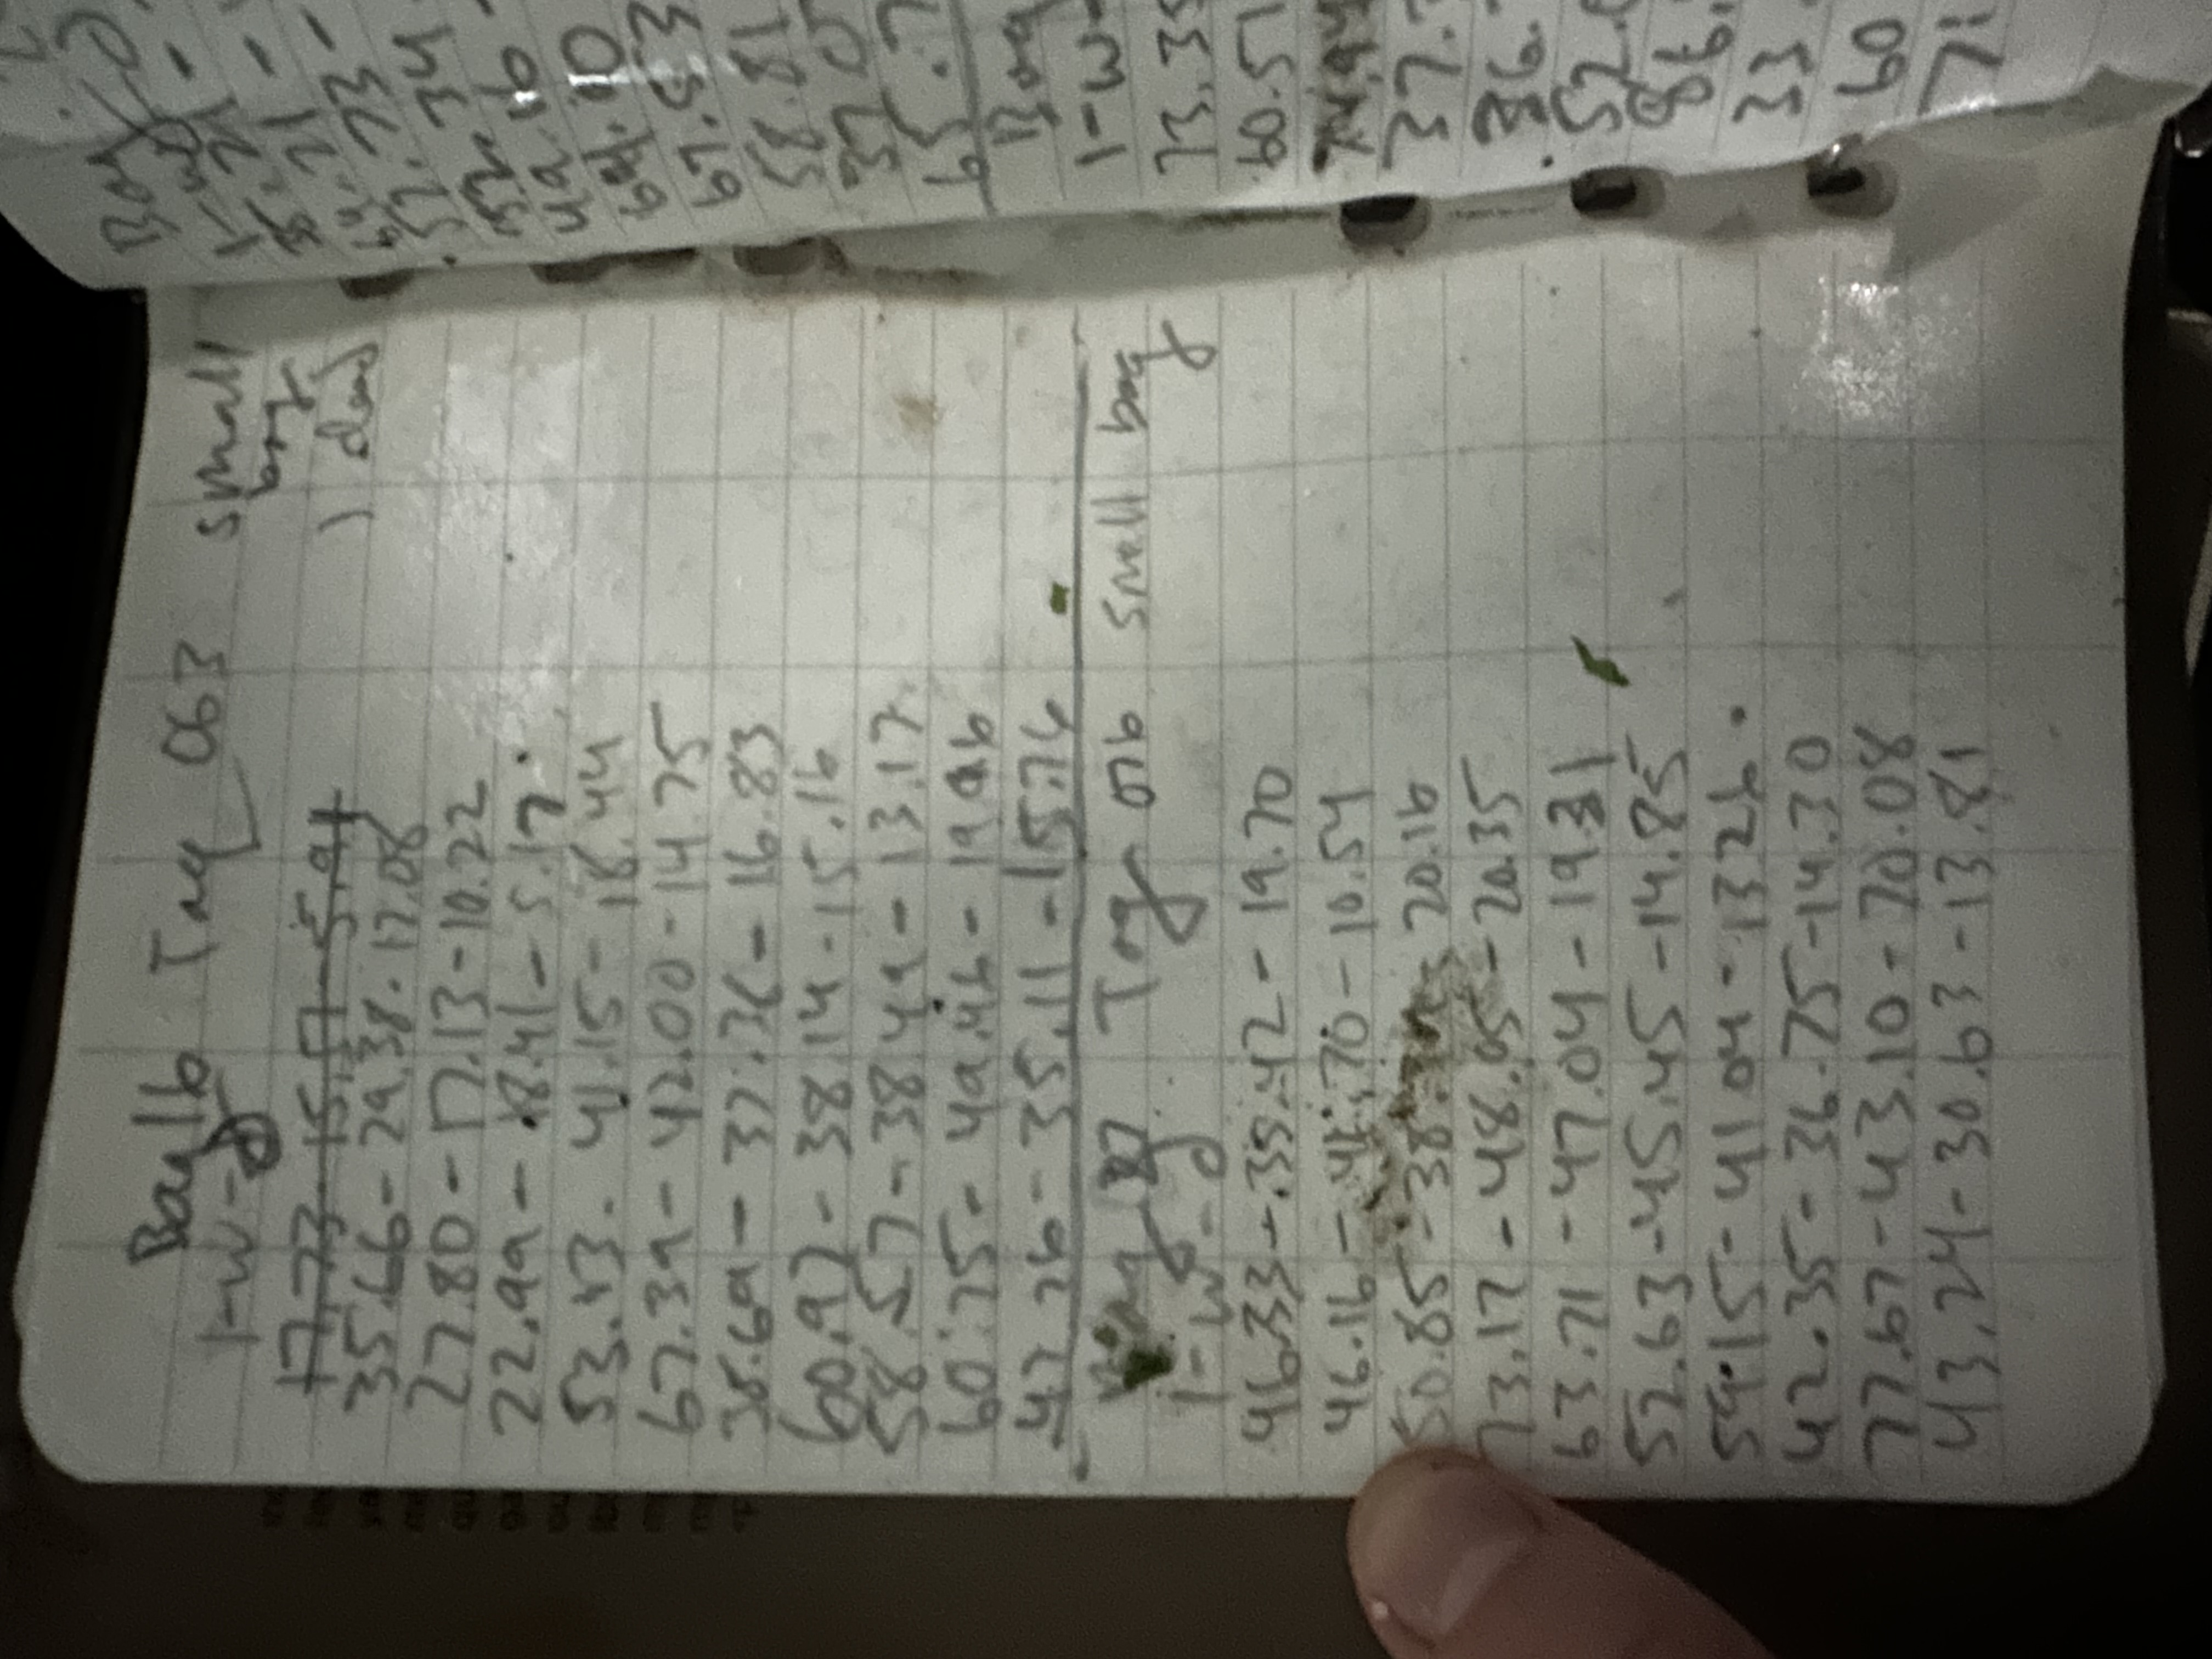 Bag 16 Tag 063 small
bag
l-w-d
17.73-15.57-5.94 ) dead
35.66-29.38-12.08
27.80-17.13-10.22
22.99-18.41-5.17
53.13-41.15-18.44
67.39-42.00-14.75
38.69-37.36-16.83
60.92-38.14-15.16
58.57-38.49-13.17
60.75-49.46-19.96
42.26-35.11-15.76
Bag 27 Tag 076 small bag
l-w-d
46.33-35.42-19.70
46.16-41.70-10.54
50.85-38. - 20.16
73.17-48.95-20.35
63.71-47.04-19.31
52.63-45.45-14.85
59.15-41.04-13.26
42.35-36.75-14.30
77.67-43.10-20.08
43.24-30.63-13.81
Bag
l-w
35.21-
64.21-
52.73-
32.34
49.16-
64.10
67.53
58.81
37.0
65.7
Bag
l-w-
73.35
60.51
37.
52.
86.
33
60